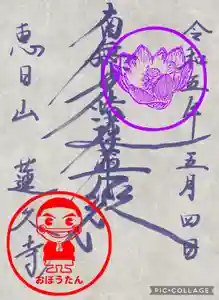 令和五年五月四日
南無妙法蓮華経
恵日山
蓮久寺
おぼうたん
PIC•COLLAGE